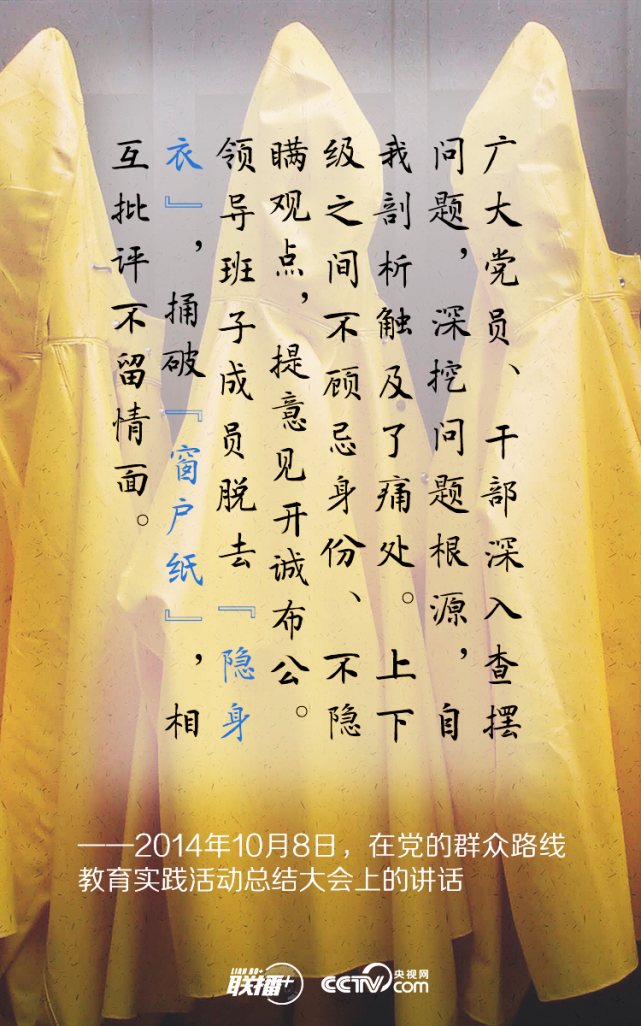 广大党员、干部深入查摆
问题，深挖问题根源，自
我剖析触及了痛处。上下
级之间不顾忌身份、不隐
瞒观点，提意见开诚布公。
领导班子成员脱去『隐身
衣』，捅破『窗户纸』，相
互批评不留情面。
——2014年10月8日，在党的群众路线
教育实践活动总结大会上的讲话
LIAN BO+
联播+
CCTV 央视网
com